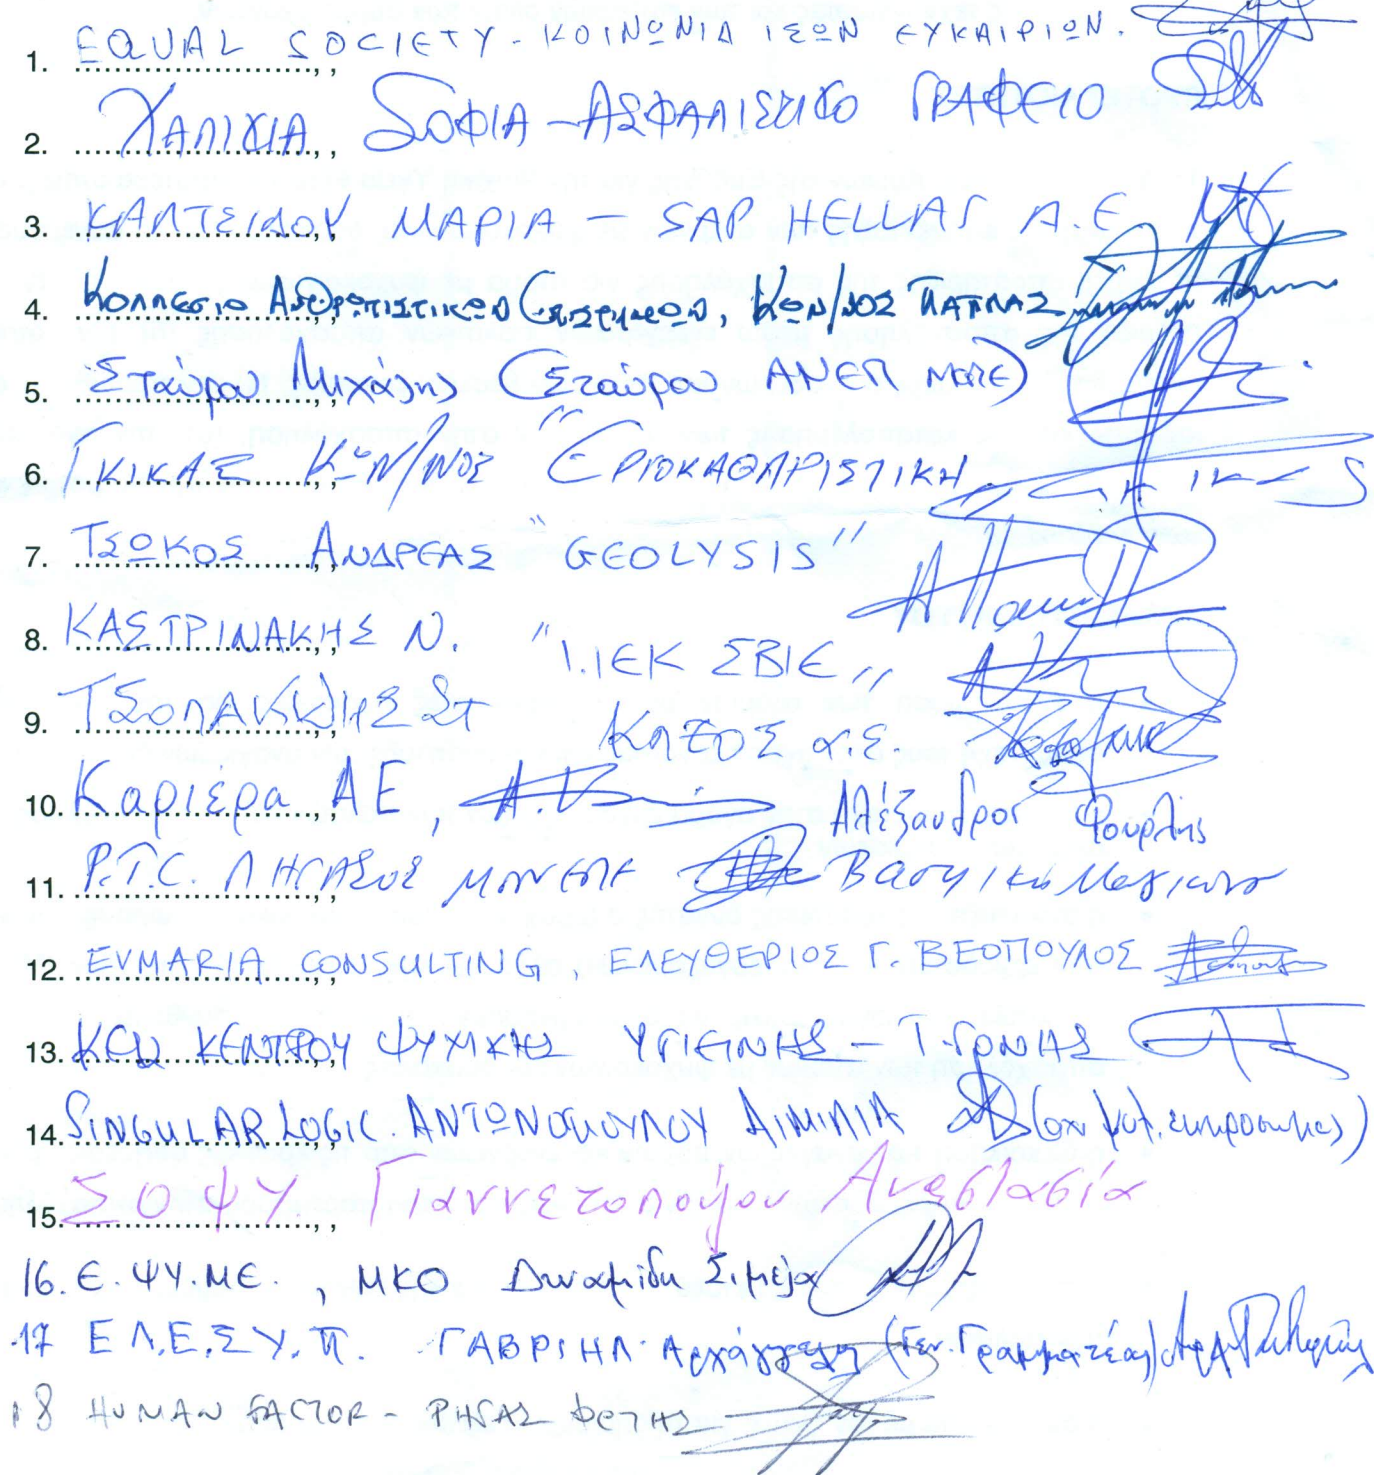 1. EQUAL SOCIETY - ΚΟΙΝΩΝΙΑ ΙΣΩΝ ΕΥΚΑΙΡΙΩΝ.
2. ΧΑΛΙΚΙΑ ΣΟΦΙΑ - ΑΣΦΑΛΙΣΤΙΚΟ ΓΡΑΦΕΙΟ
3. ΚΑΛΤΣΙΔΟΥ ΜΑΡΙΑ - SAP HELLAS A.E
4. Κολλέγιο Ανθρωπιστικών Επιστημών, ΚΩΝ/ΝΟΣ ΠΑΠΠΑΣ
5. Σταύρου Μιχάλης (Σταύρου ΑΝΕΠ ΜΕΠΕ)
6. ΓΚΙΚΑΣ ΚΩΝ/ΝΟΣ "ΕΡΙΟΚΑΘΑΡΙΣΤΙΚΗ"
7. ΤΣΩΚΟΣ ΑΝΔΡΕΑΣ "GEOLYSIS"
8. ΚΑΣΤΡΙΝΑΚΗΣ Ν. "Ι.ΙΕΚ ΣΒΙΕ"
9. ΤΣΟΛΑΚΙΔΗΣ ΣΤ α.ε.
10. Καριέρα ΑΕ, Αλέξανδρος Φουρλής
11. P.T.C. ΠΗΓΑΣΟΣ ΜΟΝΕΠΕ Βασιλική
12. EVMARIA CONSULTING, ΕΛΕΥΘΕΡΙΟΣ Γ. ΒΕΟΠΟΥΛΟΣ
13. ΚΕΝΤΡΟΥ ΨΥΧΙΚΗΣ ΥΓΙΕΙΝΗΣ - Τ. ΓΟΝΙΑΣ
14. SINGULARLOGIC ΑΝΤΩΝΟΠΟΥΛΟΥ ΑΙΜΙΛΙΑ
15. ΣΟΨΥ Γιαννετοπούλου Αναστασία
16. Ε.ΨΥ.ΜΕ., ΜΚΟ Δυναμίδη Σιμέλα
17 Ε.Λ.Ε.ΣΥ.Π. ΓΑΒΡΙΗΛ Αρχάγγελη (Γεν. Γραμματέας)
18 HUMAN FACTOR - ΡΗΓΑΣ ΦΩΤΗΣ